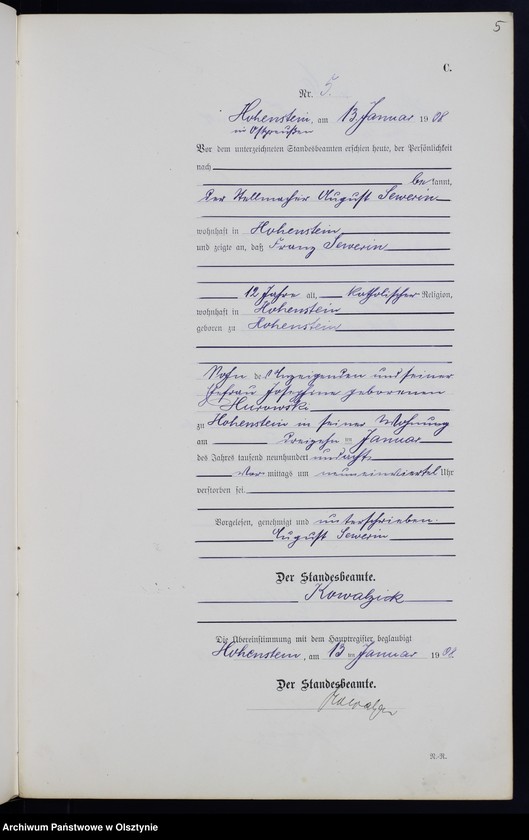 5
C.
Nr. 5.
Hohenstein, am 13 Januar 1908
in Ostpreußen
Vor dem unterzeichneten Standesbeamten erschien heute, der Persönlichkeit
nach
bekannt,
der Stellmacher August Sewerin
wohnhaft in Hohenstein
und zeigte an, daß Franz Sewerin
12 Jahre alt, katholischer Religion,
wohnhaft in Hohenstein
geboren zu Hohenstein
Sohn des Anzeigenden und seiner
Ehefrau Josephine geborenen
Hurowski
zu Hohenstein in seiner Wohnung
am dreizehnten Januar
des Jahres tausend neunhundert und acht
Vormittags um neuneinviertel Uhr
verstorben sei
Vorgelesen, genehmigt und unterschrieben
August Sewerin
Der Standesbeamte.
Kowalzick
Die Übereinstimmung mit dem Hauptregister beglaubigt
Hohenstein, am 13ten Januar 1908.
Der Standesbeamte.
N.-R.
Archiwum Państwowe w Olsztynie